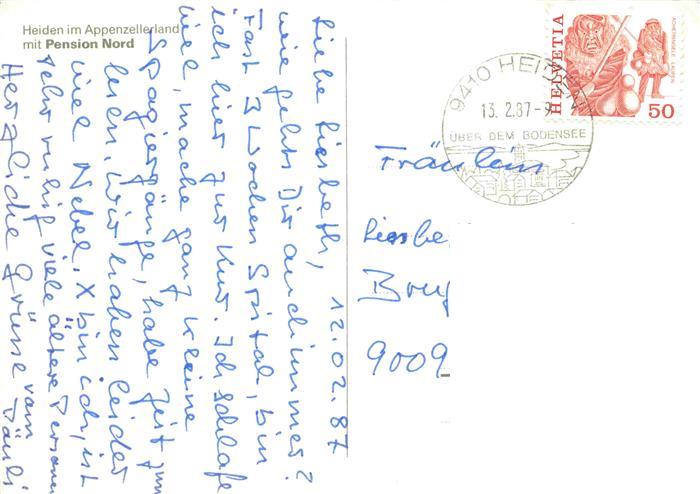 Heiden im Appenzellerland
mit Pension Nord
Liebe Liesbeth, 12.02.87
wie gehts Dir auch immer?
Fast 3 Wochen Spital, bin
ich hier zur Kur. Ich schlafe
viel, mache ganz kleine
Spaziergänge, habe Zeit zum
lesen. Wir haben leider
viel Nebel. X bin ich, ist
sehr ruhig, viele ältere Personen
Herzliche Grüsse vom
Päuli
HELVETIA
50
9410 HEIDEN
13.2.87-9
ÜBER DEM BODENSEE
Fräulein
Liesbe
Brug
9009